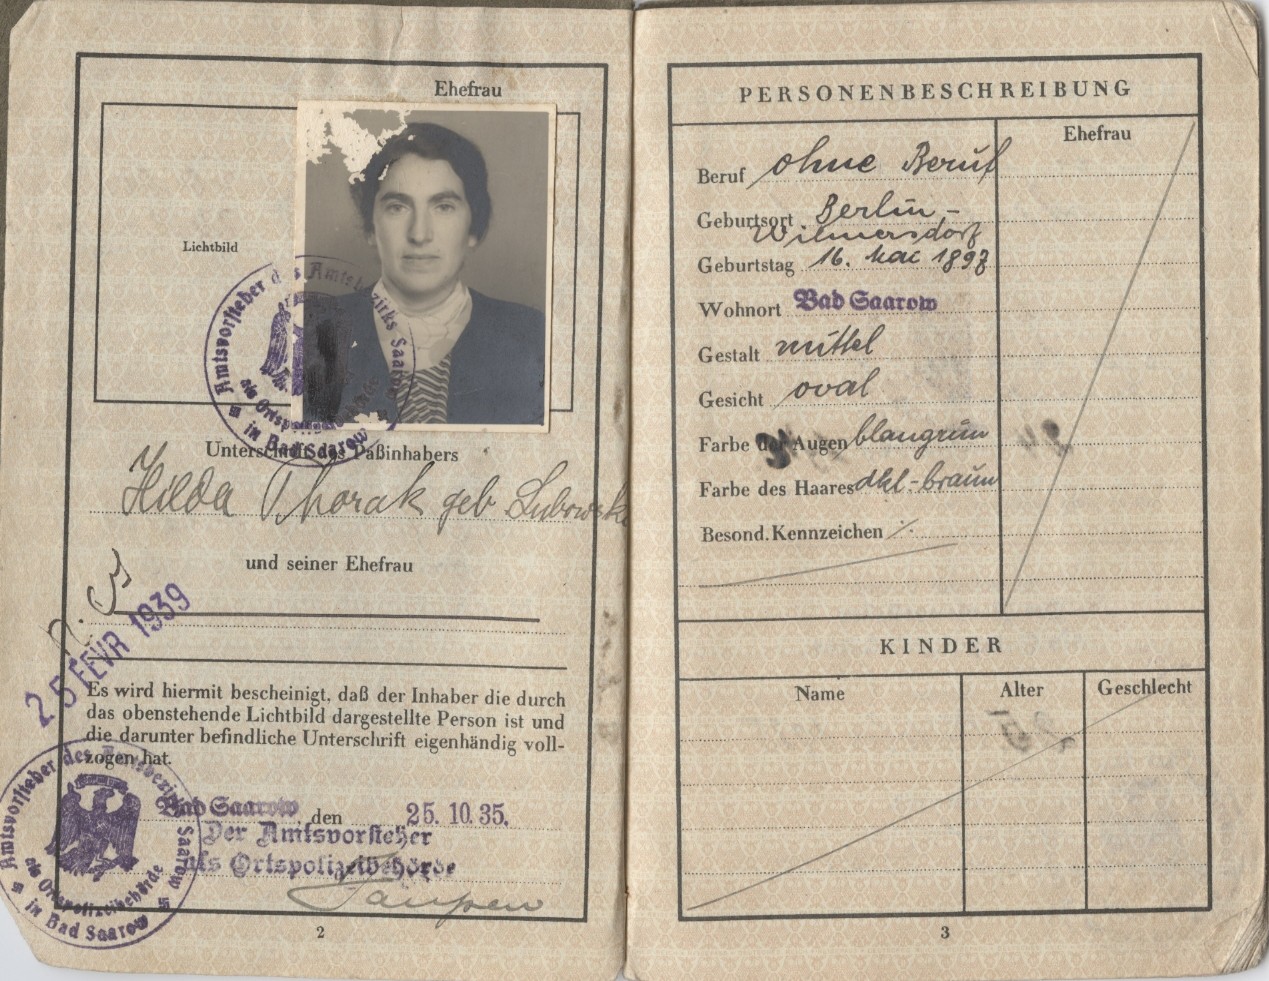 Ehefrau
Lichtbild
Amtsvorsteher des Amtsbezirks Saarow
als Ortspolizeibehörde
in Bad Saarow
Unterschrift des Paßinhabers
Hilda Thorak geb Lubowski
und seiner Ehefrau
25 FEVR 1939
Es wird hiermit bescheinigt, daß der Inhaber die durch
das obenstehende Lichtbild dargestellte Person ist und
die darunter befindliche Unterschrift eigenhändig voll-
zogen hat.
Bad Saarow, den 25. 10. 35.
Der Amtsvorsteher
als Ortspolizeibehörde
Amtsvorsteher des Amtsbezirks Saarow
als Ortspolizeibehörde
in Bad Saarow
2
PERSONENBESCHREIBUNG
Ehefrau
Beruf ohne Beruf
Geburtsort Berlin-
Wilmersdorf
Geburtstag 16. Mai 1897
Wohnort Bad Saarow
Gestalt mittel
Gesicht oval
Farbe der Augen blaugrün
Farbe des Haares dkl.-braun
Besond. Kennzeichen ·/.
KINDER
Name Alter Geschlecht
3